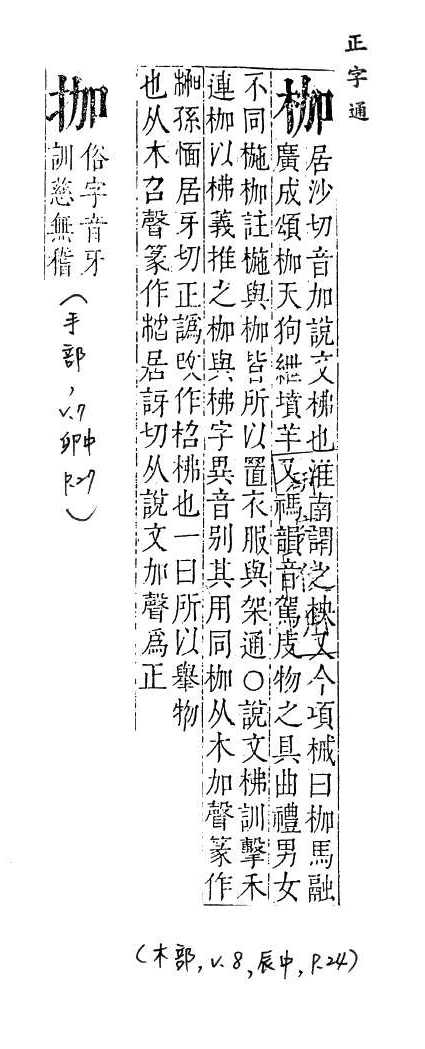 正字通
枷
居沙切音加說文柫也淮南謂之柍又今項械曰枷馬融
廣成頌枷天狗紲墳羊又禡韻音駕庋物之具曲禮男女
不同椸枷註椸與枷皆所以置衣服與架通○說文柫訓擊禾
連枷以柫義推之枷與柫字異音别其用同枷从木加聲篆作
孫愐居牙切正譌改作柖柫也一曰所以舉物
也从木召聲篆作居訝切从說文加聲爲正
拁
俗字音牙
訓慈無稽
(手部, v.7 卯中 P.27)
(木部, v.8, 辰中, P.24)